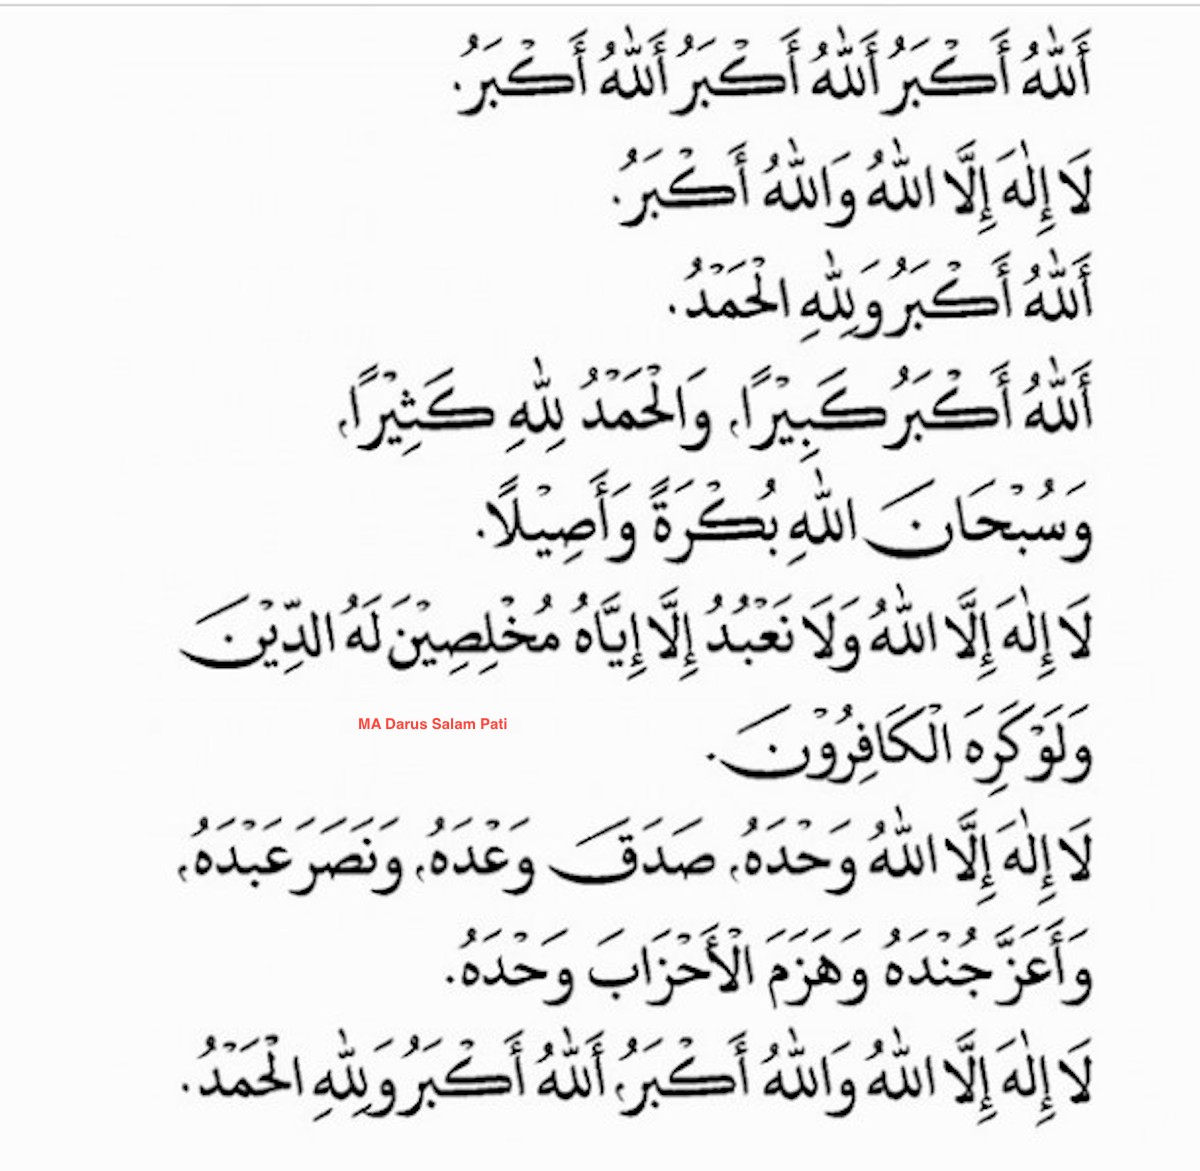 أَللّٰهُ أَكْبَرُ أَللّٰهُ أَكْبَرُ أَللّٰهُ أَكْبَرُ.
لَا إِلٰهَ إِلَّا اللّٰهُ وَاللّٰهُ أَكْبَرُ.
أَللّٰهُ أَكْبَرُ وَلِلّٰهِ الْحَمْدُ.
أَللّٰهُ أَكْبَرُ كَبِيْرًا، وَالْحَمْدُ لِلّٰهِ كَثِيْرًا،
وَسُبْحَانَ اللّٰهِ بُكْرَةً وَأَصِيْلًا.
لَا إِلٰهَ إِلَّا اللّٰهُ وَلَا نَعْبُدُ إِلَّا إِيَّاهُ مُخْلِصِيْنَ لَهُ الدِّيْنَ
وَلَوْ كَرِهَ الْكَافِرُوْنَ.
MA Darus Salam Pati
لَا إِلٰهَ إِلَّا اللّٰهُ وَحْدَهُ، صَدَقَ وَعْدَهُ، وَنَصَرَ عَبْدَهُ،
وَأَعَزَّ جُنْدَهُ وَهَزَمَ الْأَحْزَابَ وَحْدَهُ.
لَا إِلٰهَ إِلَّا اللّٰهُ وَاللّٰهُ أَكْبَرُ، أَللّٰهُ أَكْبَرُ وَلِلّٰهِ الْحَمْدُ.